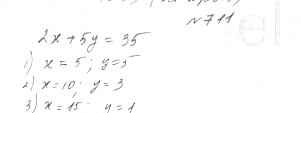 №711
2x+5y=35
1) x=5; y=5
2) x=10; y=3
3) x=15; y=1